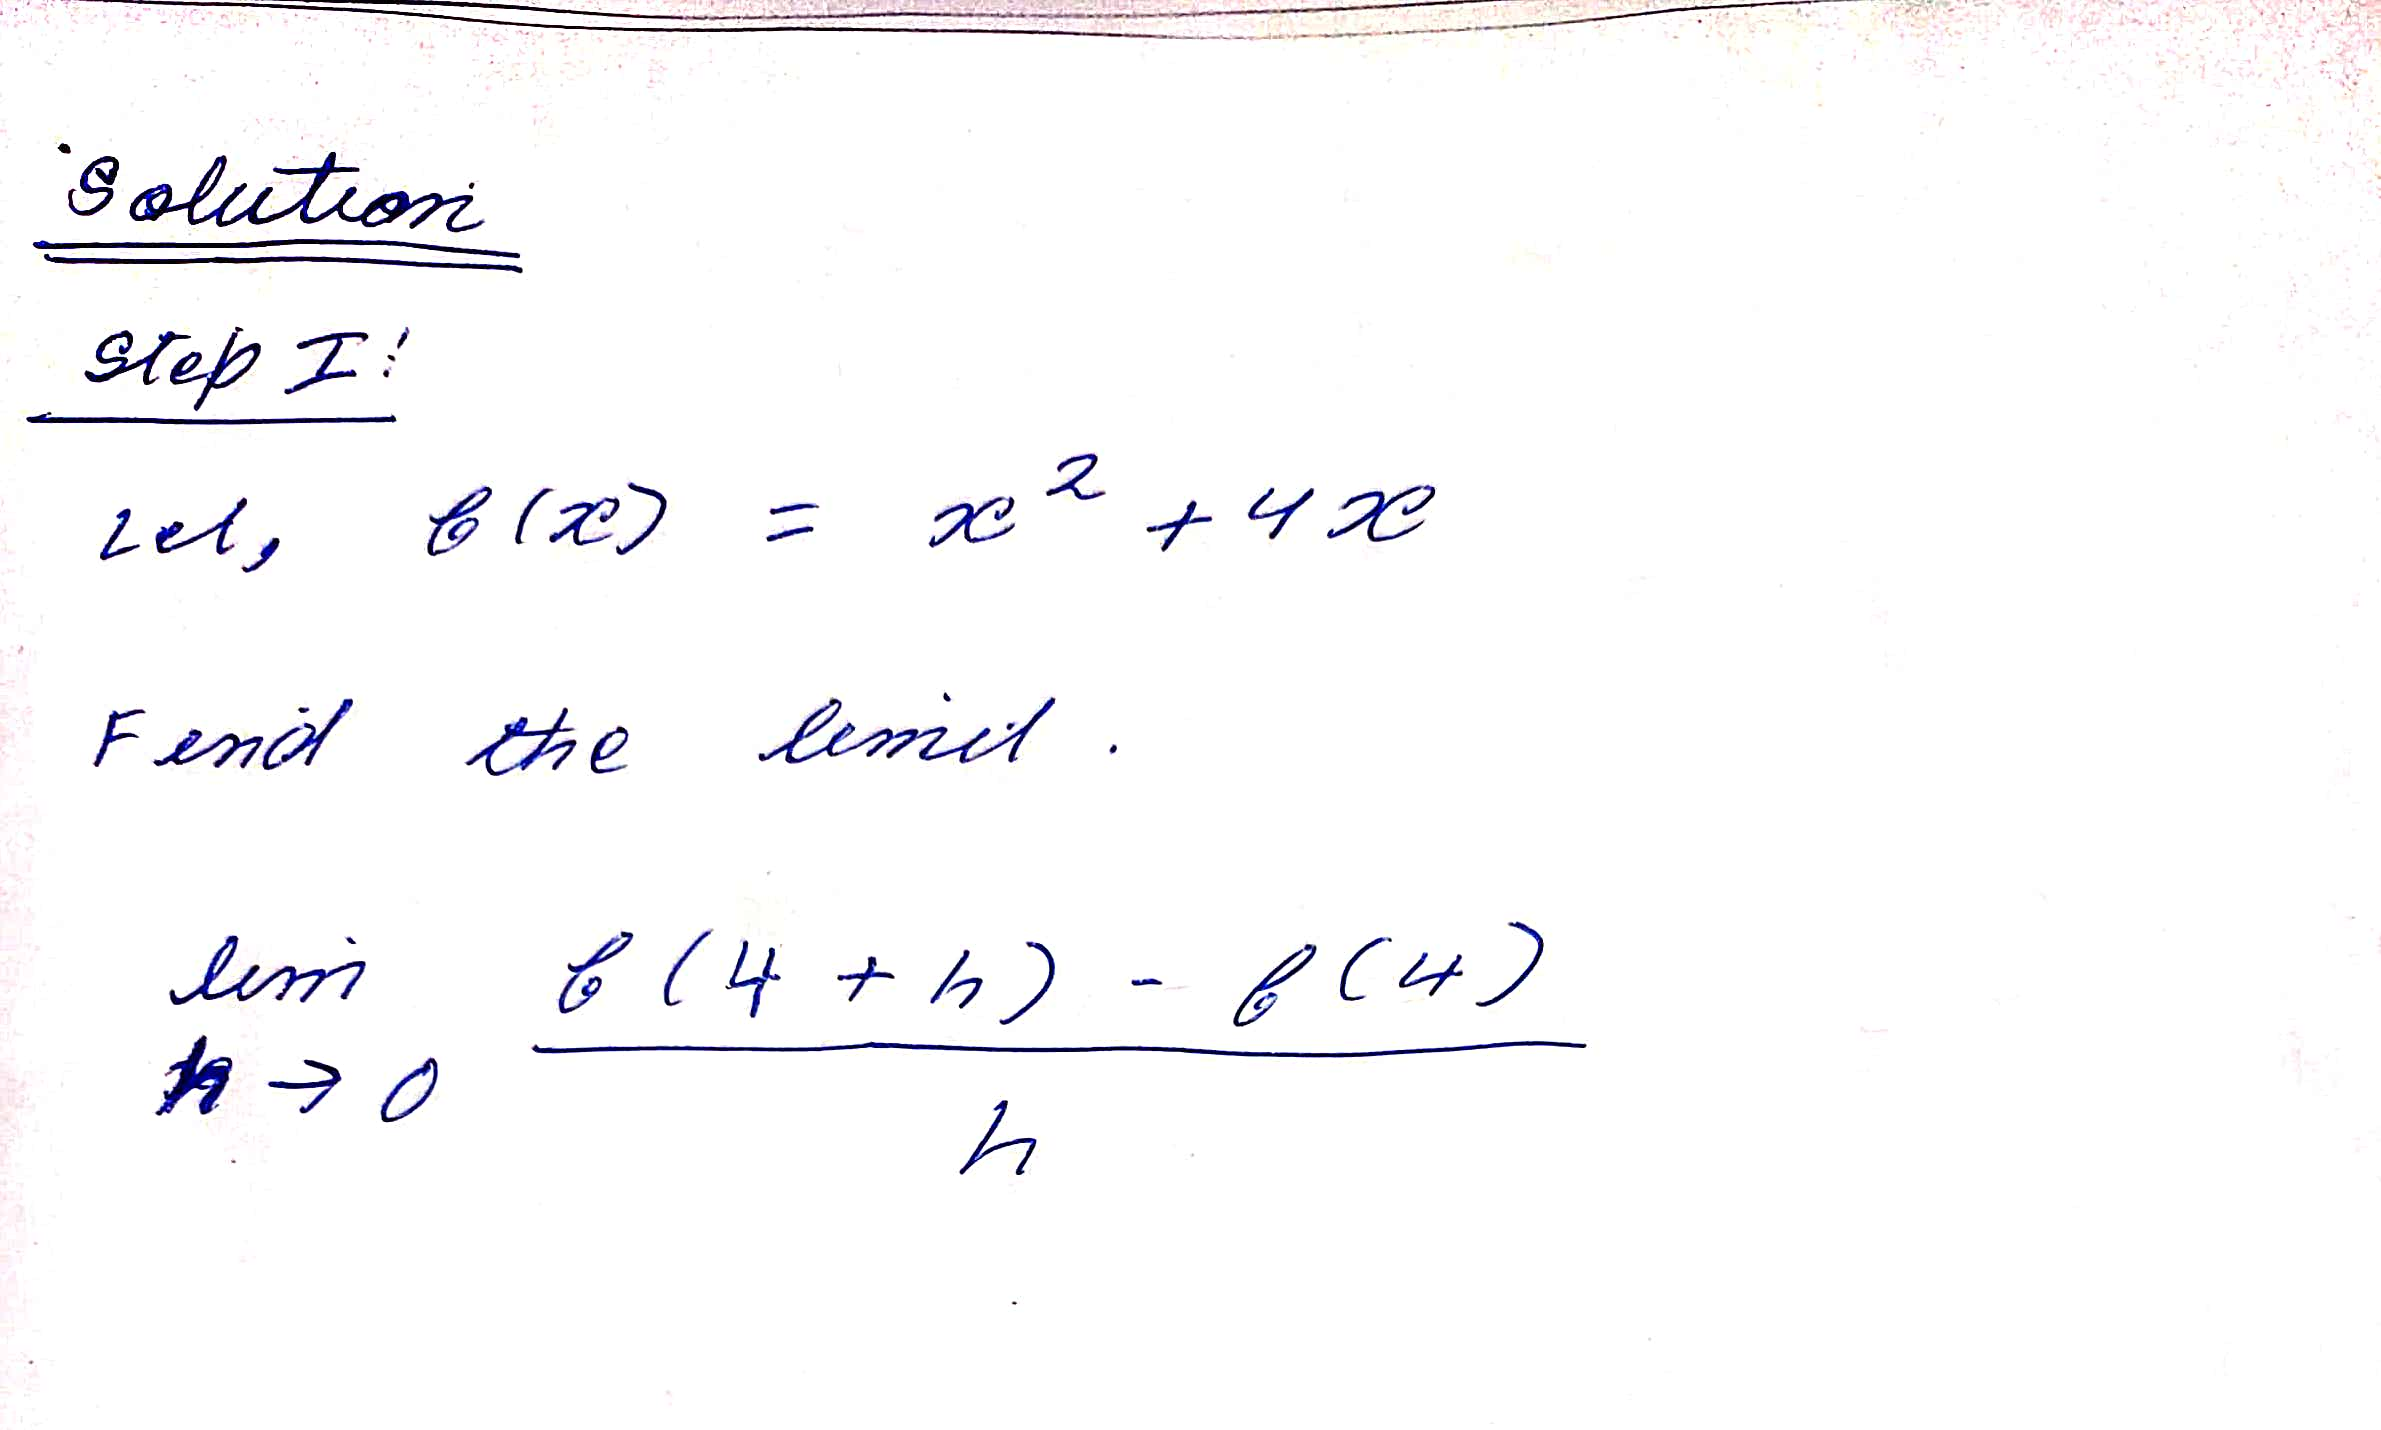 Solution
Step I:
Let, f(x) = x² + 4x
Find the limit.
lim f(4 + h) - f(4)
h → 0
h